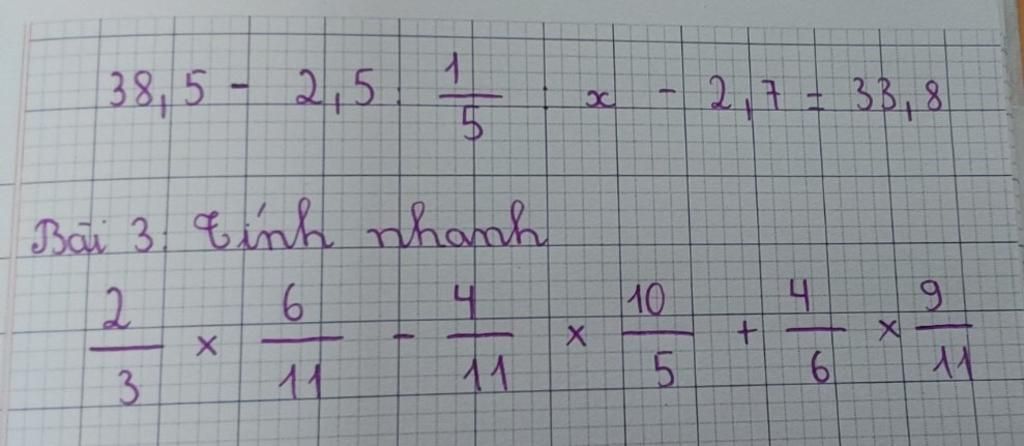 38,5 - 2,5 : 1/5 : x - 2,7 = 33,8
Bài 3: Tính nhanh
2/3 × 6/11 - 4/11 × 10/5 + 4/6 × 9/11